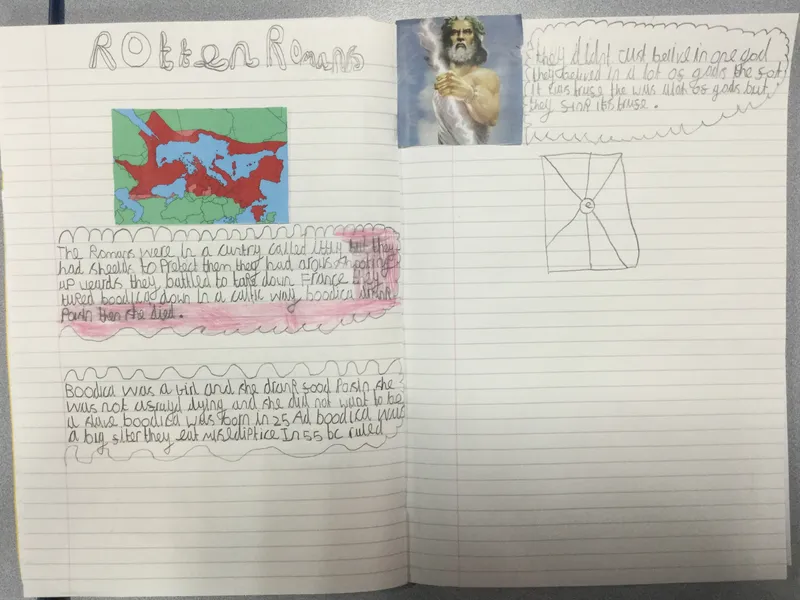 Rotten Romans
The Romans were in a cuntry called ittly but they
had sheelds to Protect them they had arows shooting
up weards they battled to take down France they
tured boodica down in a celtic way boodica drank
Posin then she died.
Boodica was a girl and she drank sood Posin she
was not asrayd dying and she did not want to be
a slave boodica was born in 25 Ad boodica was
a big they eat In 55 bc ruled
they didnt cust belive in one god
they belived in a lot os gods the sat
it was the was alot os gods but
they